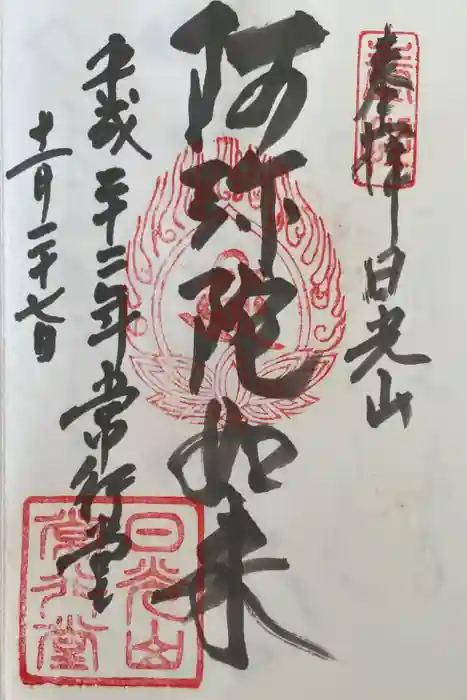 奉拝 日光山
阿弥陀如来
平成二十二年 常行堂
十一月二十七日
日光山
常行堂